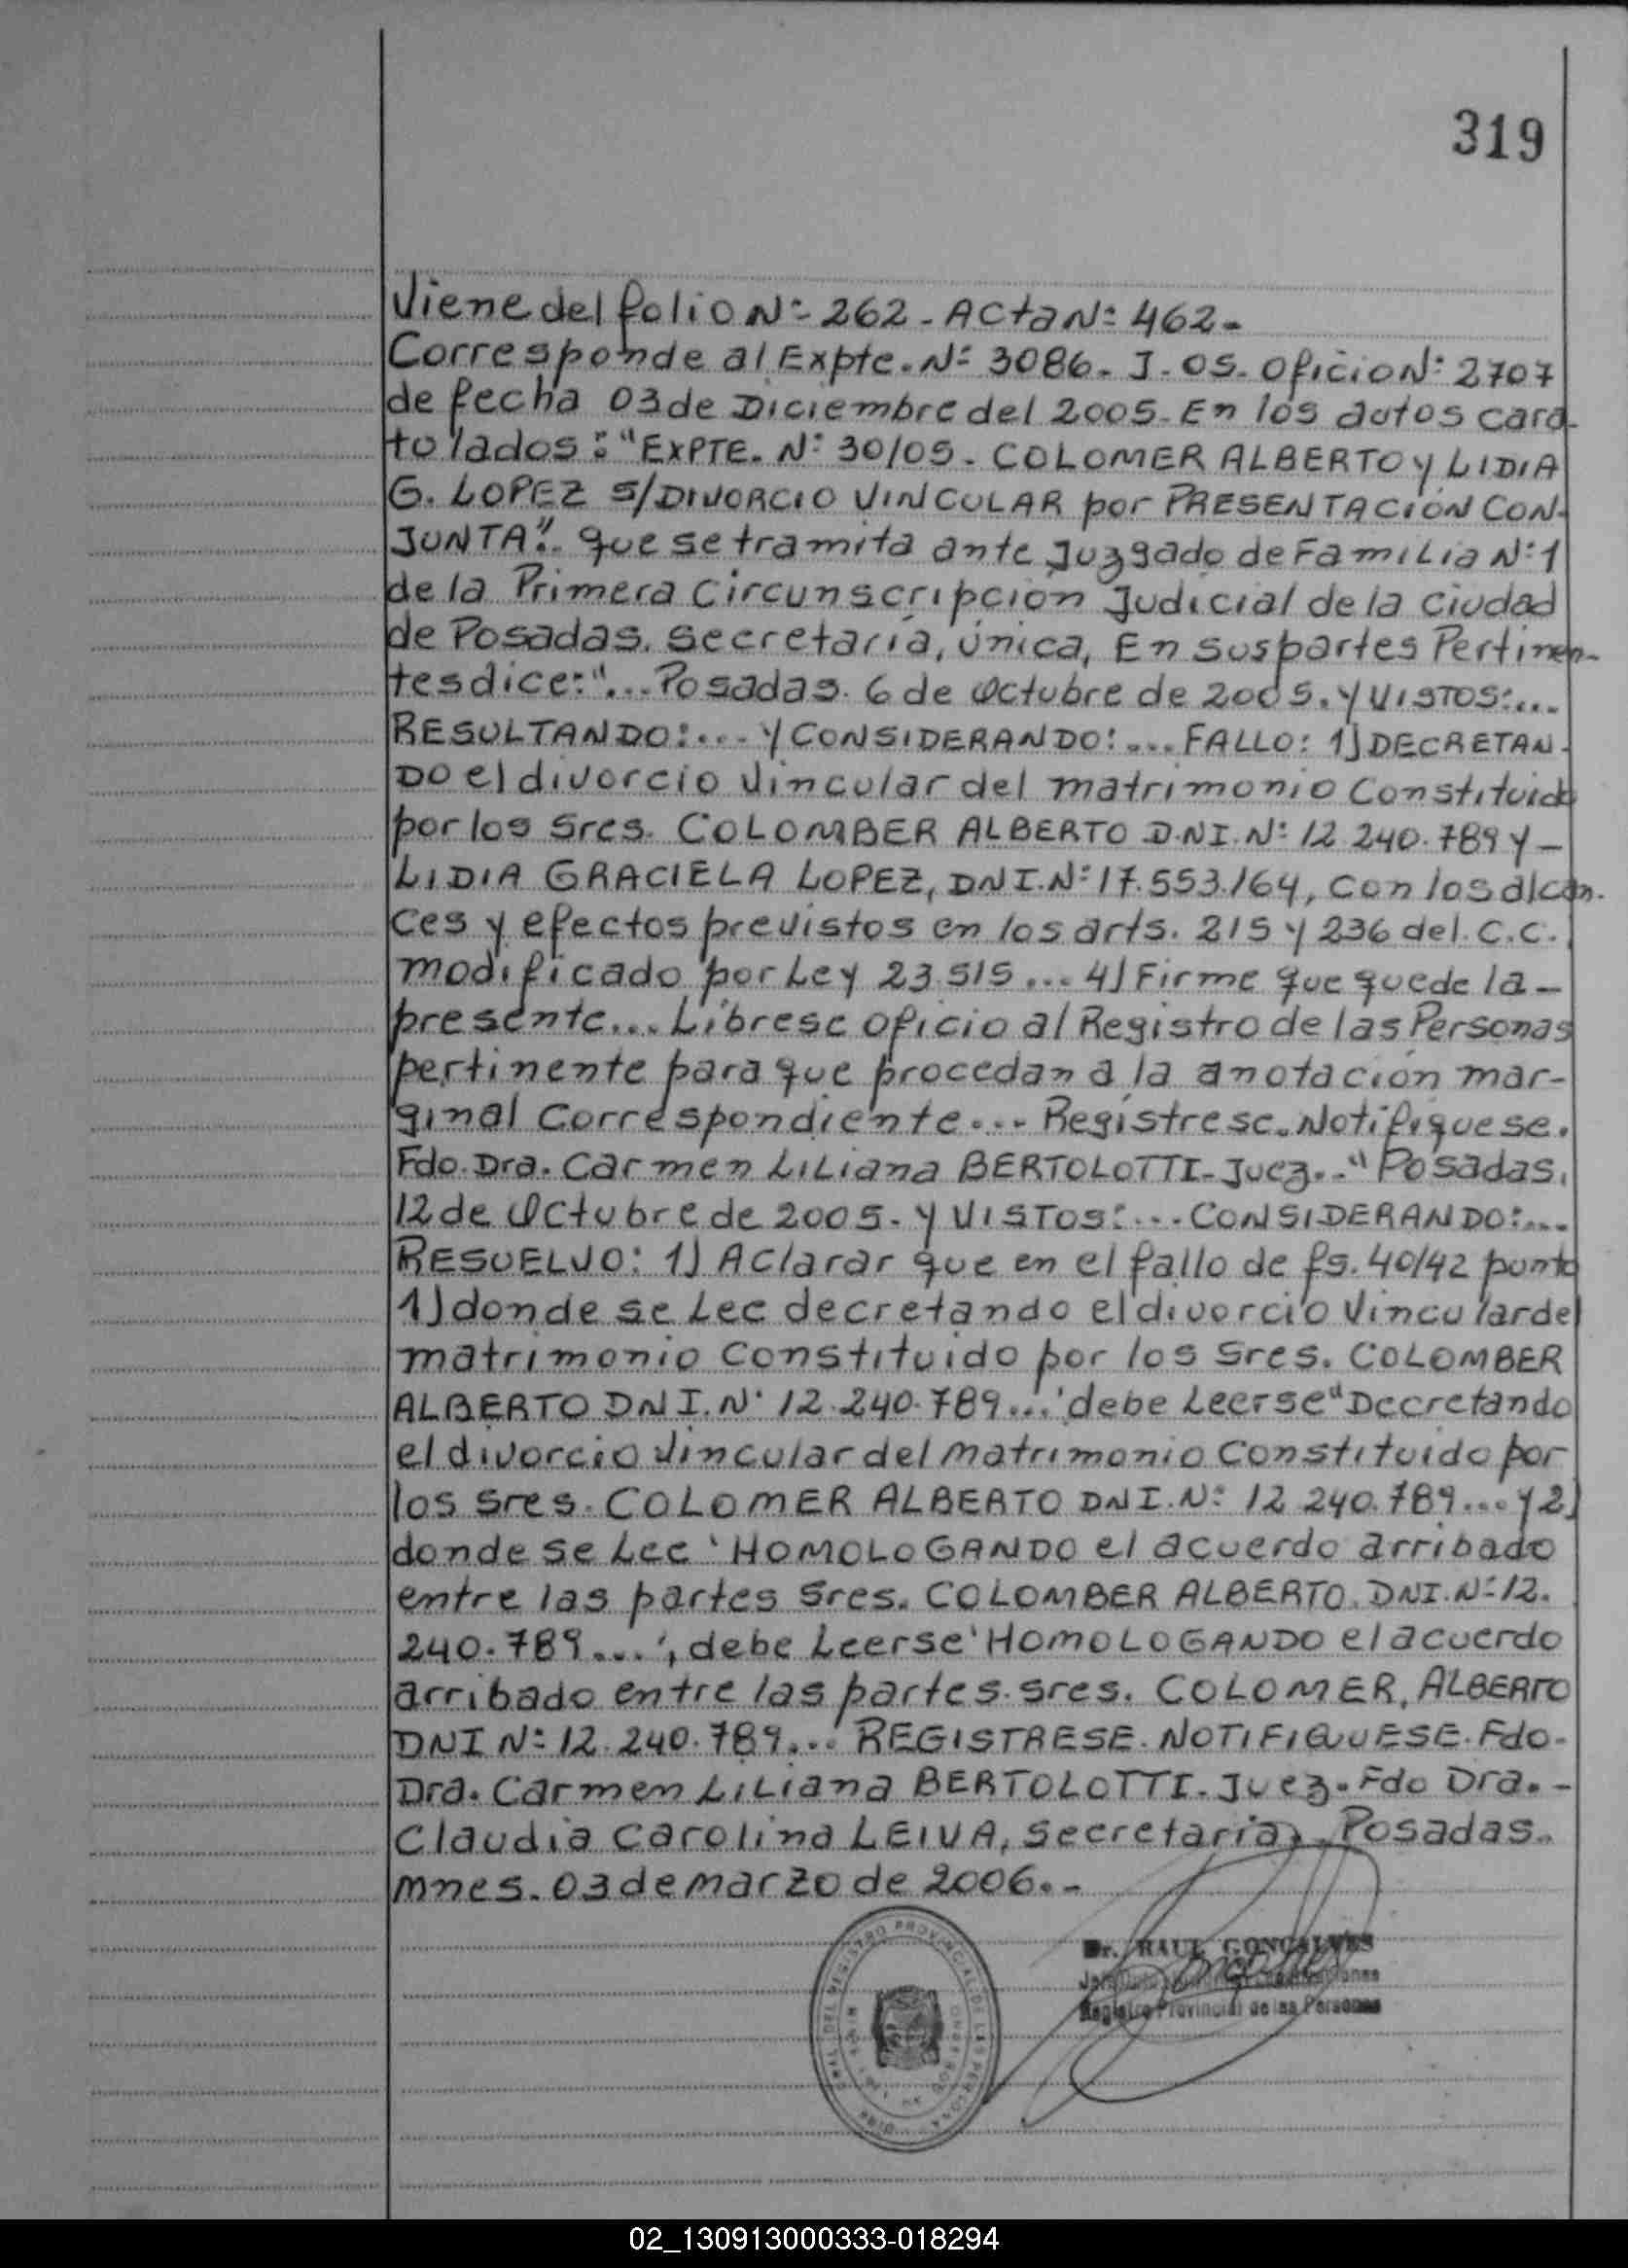 319
Viene del folio Nº 262 - Acta Nº 462 -
Corresponde al Expte. Nº 3086. J. 05. Oficio Nº 2707
de fecha 03 de Diciembre del 2005. En los autos cara-
tulados: "EXPTE. Nº 30/05. COLOMER ALBERTO y LIDIA
G. LOPEZ S/DIVORCIO VINCULAR por PRESENTACIÓN CON-
JUNTA". que se tramita ante Juzgado de Familia Nº 1
de la Primera Circunscripción Judicial de la ciudad
de Posadas. Secretaría, única, En sus partes Pertinen-
tes dice: "... Posadas. 6 de Octubre de 2005. Y VISTOS:...
RESULTANDO:... Y CONSIDERANDO:... FALLO: 1) DECRETAN-
DO el divorcio vincular del matrimonio Constituido
por los Sres. COLOMBER ALBERTO D.N.I. Nº 12.240.789 y -
LIDIA GRACIELA LOPEZ, DNI. Nº 17.553.164, con los alcan-
ces y efectos previstos en los arts. 215 y 236 del C.C.
modificado por Ley 23.515 ... 4) Firme que quede la -
presente... Líbrese oficio al Registro de las Personas
pertinente para que procedan a la anotación mar-
ginal correspondiente... Regístrese. Notifíquese.
Fdo. Dra. Carmen Liliana BERTOLOTTI - Juez.. " Posadas,
12 de Octubre de 2005. Y VISTOS:... CONSIDERANDO:...
RESUELVO: 1) Aclarar que en el fallo de fs. 40/42 punto
1) donde se Lee decretando el divorcio vincular del
matrimonio constituido por los Sres. COLOMBER
ALBERTO DNI. Nº 12.240.789...' debe Leerse "Decretando
el divorcio vincular del matrimonio Constituido por
los Sres. COLOMER ALBERTO DNI. Nº 12.240.789... y 2)
donde se Lee 'HOMOLOGANDO el acuerdo arribado
entre las partes Sres. COLOMBER ALBERTO. DNI. Nº 12.
240.789...', debe Leerse 'HOMOLOGANDO el acuerdo
arribado entre las partes. Sres. COLOMER, ALBERTO
DNI Nº 12.240.789... REGISTRESE. NOTIFIQUESE. Fdo.
Dra. Carmen Liliana BERTOLOTTI - Juez. Fdo Dra. -
Claudia Carolina LEIVA, Secretaria, Posadas.
Mnes. 03 de marzo de 2006. -
Dr. RAUL GONCALVES
Registro Provincial de las Personas
DEL REGISTRO PROVINCIAL DE LAS PERSONAS
02_130913000333-018294